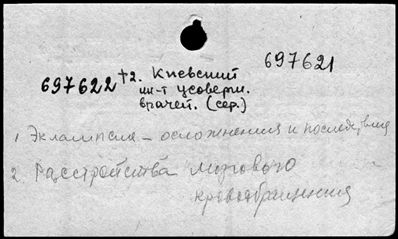 697621
697622 +2. Киевский
ин-т усоверш.
врачей. (сер.)
1. Эклампсия – осложнения и последствия
2. Расстройства мозгового
кровообращения